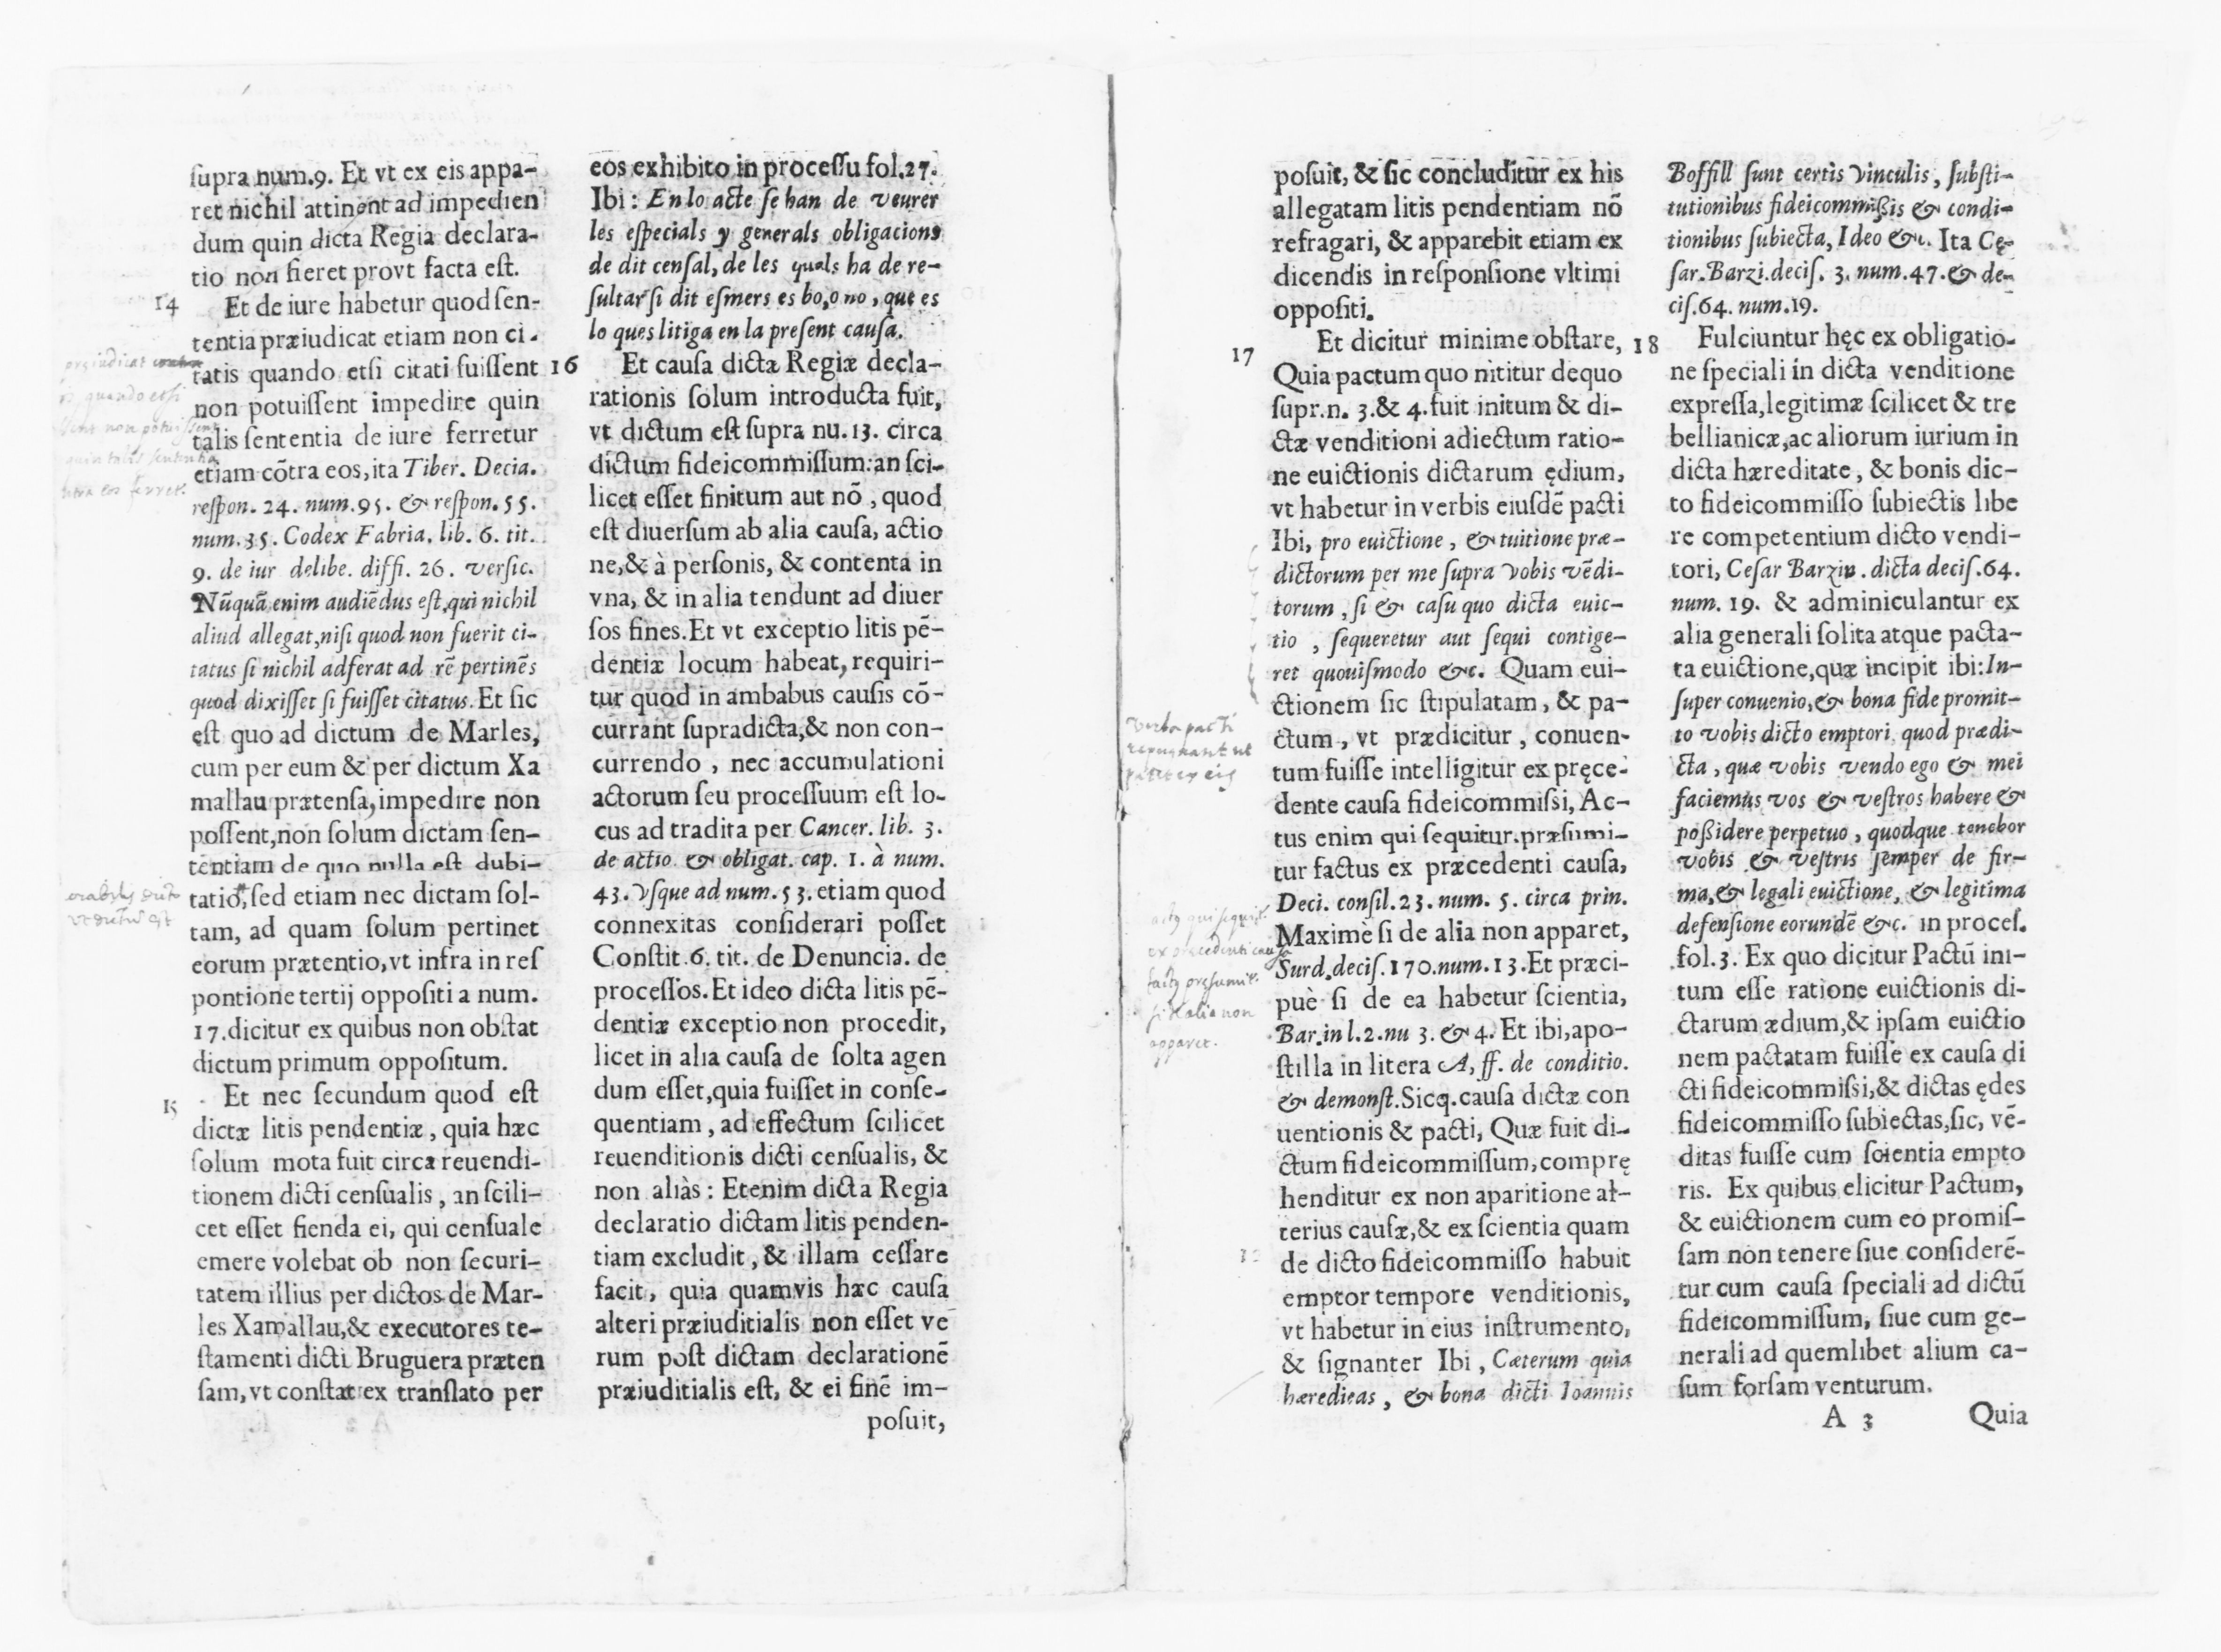 ſupra num.9. Et vt ex eis appa-
ret nichil attinent ad impedien
dum quin dicta Regia declara-
tio non fieret provt facta eſt.
14 Et de iure habetur quod ſen-
tentia præiudicat etiam non ci-
tatis quando etſi citati fuiſſent
non potuiſſent impedire quin
talis ſententia de iure ferretur
etiam cõtra eos, ita Tiber. Decia.
reſpon. 24. num. 95. & reſpon. 55.
num. 35. Codex Fabria. lib. 6. tit.
9. de iur delibe. diffi. 26. verſic.
Nũquã enim audiẽdus eſt, qui nichil
aliud allegat, niſi quod non fuerit ci-
tatus ſi nichil adferat ad rẽ pertinẽs
quod dixiſſet ſi fuiſſet citatus. Et ſic
eſt quo ad dictum de Marles,
cum per eum & per dictum Xa
mallau prætenſa, impedire non
poſſent, non ſolum dictam ſen-
tentiam de quo nulla eſt dubi-
tatio, ſed etiam nec dictam ſol-
tam, ad quam ſolum pertinet
eorum prætentio, vt infra in reſ
pontione tertij oppoſiti a num.
17. dicitur ex quibus non obſtat
dictum primum oppoſitum.
15 Et nec ſecundum quod eſt
dictæ litis pendentiæ, quia hæc
ſolum mota fuit circa reuendi-
tionem dicti cenſualis, an ſcili-
cet eſſet fienda ei, qui cenſuale
emere volebat ob non ſecuri-
tatem illius per dictos de Mar-
les Xamallau, & executores te-
ſtamenti dicti Bruguera præten
ſam, vt conſtat ex tranſlato per
eos exhibito in proceſſu fol.27.
Ibi: En lo acte ſe han de veurer
les eſpecials y generals obligacions
de dit cenſal, de les quals ha de re-
ſultar ſi dit eſmers es bo, o no, que es
lo ques litiga en la preſent cauſa.
16 Et cauſa dictæ Regiæ decla-
rationis ſolum introducta fuit,
vt dictum eſt ſupra nu. 13. circa
dictum fideicommiſſum: an ſci-
licet eſſet finitum aut nõ, quod
eſt diuerſum ab alia cauſa, actio
ne, & à perſonis, & contenta in
vna, & in alia tendunt ad diuer
ſos fines. Et vt exceptio litis pẽ-
dentiæ locum habeat, requiri-
tur quod in ambabus cauſis cõ-
currant ſupradicta, & non con-
currendo, nec accumulationi
actorum ſeu proceſſuum eſt lo-
cus ad tradita per Cancer. lib. 3.
de actio. & obligat. cap. 1. à num.
43. vſque ad num. 53. etiam quod
connexitas conſiderari poſſet
Conſtit. 6. tit. de Denuncia. de
proceſſos. Et ideo dicta litis pẽ-
dentiæ exceptio non procedit,
licet in alia cauſa de ſolta agen
dum eſſet, quia fuiſſet in conſe-
quentiam, ad effectum ſcilicet
reuenditionis dicti cenſualis, &
non aliàs: Etenim dicta Regia
declaratio dictam litis penden-
tiam excludit, & illam ceſſare
facit, quia quamvis hæc cauſa
alteri præiuditialis non eſſet ve
rum poſt dictam declarationẽ
præiuditialis eſt, & ei finẽ im-
poſuit,
poſuit, & ſic concluditur ex his
allegatam litis pendentiam nõ
refragari, & apparebit etiam ex
dicendis in reſponſione vltimi
oppoſiti.
17 Et dicitur minime obſtare,
Quia pactum quo nititur de quo
ſupr. n. 3. & 4. fuit initum & di-
ctæ venditioni adiectum ratio-
ne euictionis dictarum ędium,
vt habetur in verbis eiuſdẽ pacti
Ibi, pro euictione, & tuitione præ-
dictorum per me ſupra vobis vẽdi-
torum, ſi & caſu quo dicta euic-
tio, ſequeretur aut ſequi contige-
ret quouiſmodo &c. Quam eui-
ctionem ſic ſtipulatam, & pa-
ctum, vt prædicitur, conuen-
tum fuiſſe intelligitur ex pręce-
dente cauſa fideicommiſsi, Ac-
tus enim qui ſequitur, præſumi-
tur factus ex præcedenti cauſa,
Deci. conſil. 23. num. 5. circa prin.
Maximè ſi de alia non apparet,
Surd. deciſ. 170. num. 13. Et præci-
puè ſi de ea habetur ſcientia,
Bar. in l. 2. nu 3. & 4. Et ibi, apo-
ſtilla in litera A, ff. de conditio.
& demonſt. Sicq. cauſa dictæ con
uentionis & pacti, Quæ fuit di-
ctum fideicommiſſum, comprę
henditur ex non aparitione al-
terius cauſæ, & ex ſcientia quam
de dicto fideicommiſſo habuit
emptor tempore venditionis,
vt habetur in eius inſtrumento,
& ſignanter Ibi, Cæterum quia
hæredieas, & bona dicti Ioannis
Boffill ſunt certis vinculis, ſubſti-
tutionibus fideicommiſsis & condi-
tionibus ſubiecta, Ideo &c. Ita Cę-
ſar. Barzi. deciſ. 3. num. 47. & de-
ciſ. 64. num. 19.
18 Fulciuntur hęc ex obligatio-
ne ſpeciali in dicta venditione
expreſſa, legitimæ ſcilicet & tre
bellianicæ, ac aliorum iurium in
dicta hæreditate, & bonis dic-
to fideicommiſſo ſubiectis libe
re competentium dicto vendi-
tori, Ceſar Barziu. dicta deciſ. 64.
num. 19. & adminiculantur ex
alia generali ſolita atque pacta-
ta euictione, quæ incipit ibi: In-
ſuper conuenio, & bona fide promit-
to vobis dicto emptori, quod prædi-
cta, quæ vobis vendo ego & mei
faciemus vos & veſtros habere &
poſsidere perpetuo, quodque tenebor
vobis & veſtris ſemper de fir-
ma, & legali euictione, & legitima
defenſione eorundẽ &c. in proceſ.
fol. 3. Ex quo dicitur Pactũ ini-
tum eſſe ratione euictionis di-
ctarum ædium, & ipſam euictio
nem pactatam fuiſſe ex cauſa di
cti fideicommiſsi, & dictas ędes
fideicommiſſo ſubiectas, ſic, vẽ-
ditas fuiſſe cum ſcientia empto
ris. Ex quibus elicitur Pactum,
& euictionem cum eo promiſ-
ſam non tenere ſiue conſiderẽ-
tur cum cauſa ſpeciali ad dictũ
fideicommiſſum, ſiue cum ge-
nerali ad quemlibet alium ca-
ſum forſam venturum.
A 3 Quia